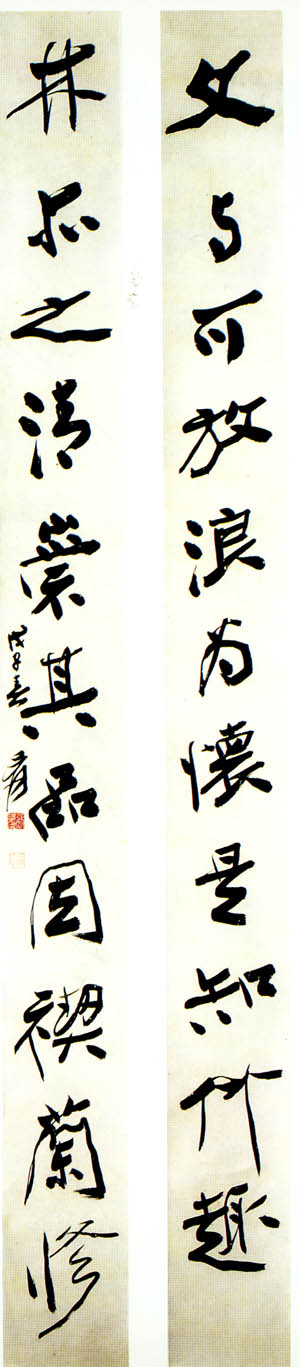 文与可放浪为懷是知竹趣
林亦之清崇其品因禊蘭修
戊子春 爰